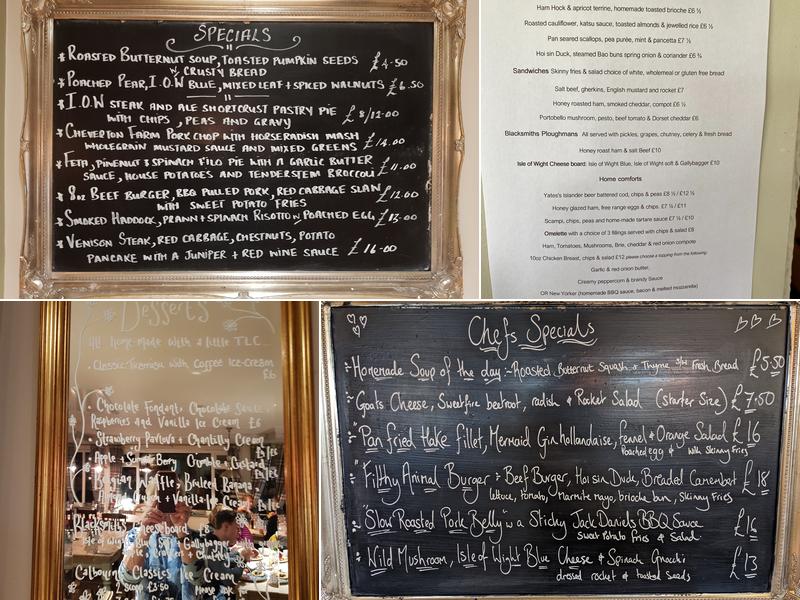 SPECIALS
* ROASTED BUTTERNUT SOUP, TOASTED PUMPKIN SEEDS £4.50
W/ CRUSTY BREAD
* POACHED PEAR, I.O.W BLUE, MIXED LEAF + SPICED WALNUTS £6.50
* I.O.W STEAK AND ALE SHORTCRUST PASTRY PIE £8/12.00
WITH CHIPS, PEAS AND GRAVY
* CHEVERTON FARM PORK CHOP WITH HORSERADISH MASH £14.00
WHOLEGRAIN MUSTARD SAUCE AND MIXED GREENS
* FETA, PINENUT & SPINACH FILO PIE WITH A GARLIC BUTTER £11.00
SAUCE, HOUSE POTATOES AND TENDERSTEM BROCCOLI
* 8oz BEEF BURGER, BBQ PULLED PORK, RED CABBAGE SLAW £12.00
WITH SWEET POTATO FRIES
* SMOKED HADDOCK, PRAWN + SPINACH RISOTTO W POACHED EGG, £13.00
* VENISON STEAK, RED CABBAGE, CHESTNUTS, POTATO
PANCAKE WITH A JUNIPER + RED WINE SAUCE £16.00
Ham Hock & apricot terrine, homemade toasted brioche £6 ½
Roasted cauliflower, katsu sauce, toasted almonds & jewelled rice £6 ½
Pan seared scallops, pea purée, mint & pancetta £7 ½
Hoi sin Duck, steamed Bao buns spring onion & coriander £6 ¾
Sandwiches Skinny fries & salad choice of white, wholemeal or gluten free bread
Salt beef, gherkins, English mustard and rocket £7
Honey roasted ham, smoked cheddar, compot £6 ½
Portobello mushroom, pesto, beef tomato & Dorset cheddar £6
Blacksmiths Ploughmans All served with pickles, grapes, chutney, celery & fresh bread
Honey roast ham & salt Beef £10
Isle of Wight Cheese board: Isle of Wight Blue, Isle of Wight soft & Gallybagger £10
Home comforts
Yates's Islander beer battered cod, chips & peas £8 ½ / £12 ½
Honey glazed ham, free range eggs & chips £7 ½ / £11
Scampi, chips, peas and home-made tartare sauce £7 ½ / £10
Omelette with a choice of 3 fillings served with chips & salad £8
Ham, Tomatoes, Mushrooms, Brie, cheddar & red onion compote
10oz Chicken Breast, chips & salad £12 please choose a topping from the following:
Garlic & red onion butter,
Creamy peppercorn & brandy Sauce
OR New Yorker (homemade BBQ sauce, bacon & melted mozzarella)
Desserts
All home made with a little TLC
• Classic Tiramisu with Coffee Ice-cream
£6
• Chocolate Fondant, Chocolate Sauce
Raspberries and Vanilla Ice Cream £6
• Strawberry Pavlova + Chantilly Cream
• Apple + Berry Crumble + Custard
• Belgian Waffle, Bruleed Banana
+ Vanilla Ice Cream
Cheeseboard £8
Isle of Wight Gallybagger
Calbourne Classics Ice Cream
2 Scoop £3.50
Chefs Specials
Homemade Soup of the day :- Roasted Butternut Squash & Thyme Fresh Bread £5.50
Goats Cheese, Sweetfire beetroot, radish & Rocket Salad (starter Size) £7.50
Pan fried Hake fillet, Mermaid Gin hollandaise, fennel & Orange Salad £16
Poached egg & Skinny fries
Filthy Animal Burger :- Beef Burger, Hoi sin Duck, Breaded Camembert £18
lettuce, tomato, marmite mayo, brioche bun, Skinny fries
"Slow Roasted Pork Belly" w a Sticky Jack Daniels BBQ Sauce £16
sweet Potato fries & Salad
Wild Mushroom, Isle of Wight Blue Cheese & Spinach Gnocchi £13
dressed rocket & toasted Seeds